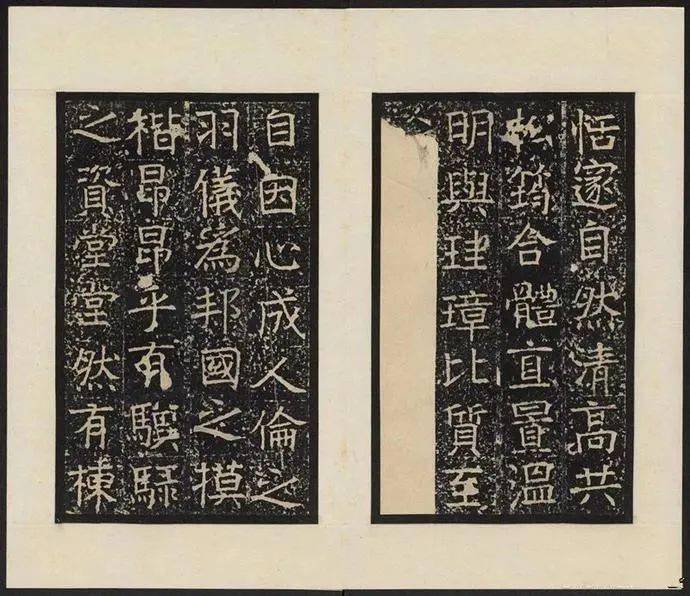 恬自然清高共
松鶴合體直置溫
明與珪璋比質至
自因心成人倫之
羽儀為邦國之摸
楷昂昂乎有驥騄
之資堂堂然有棟